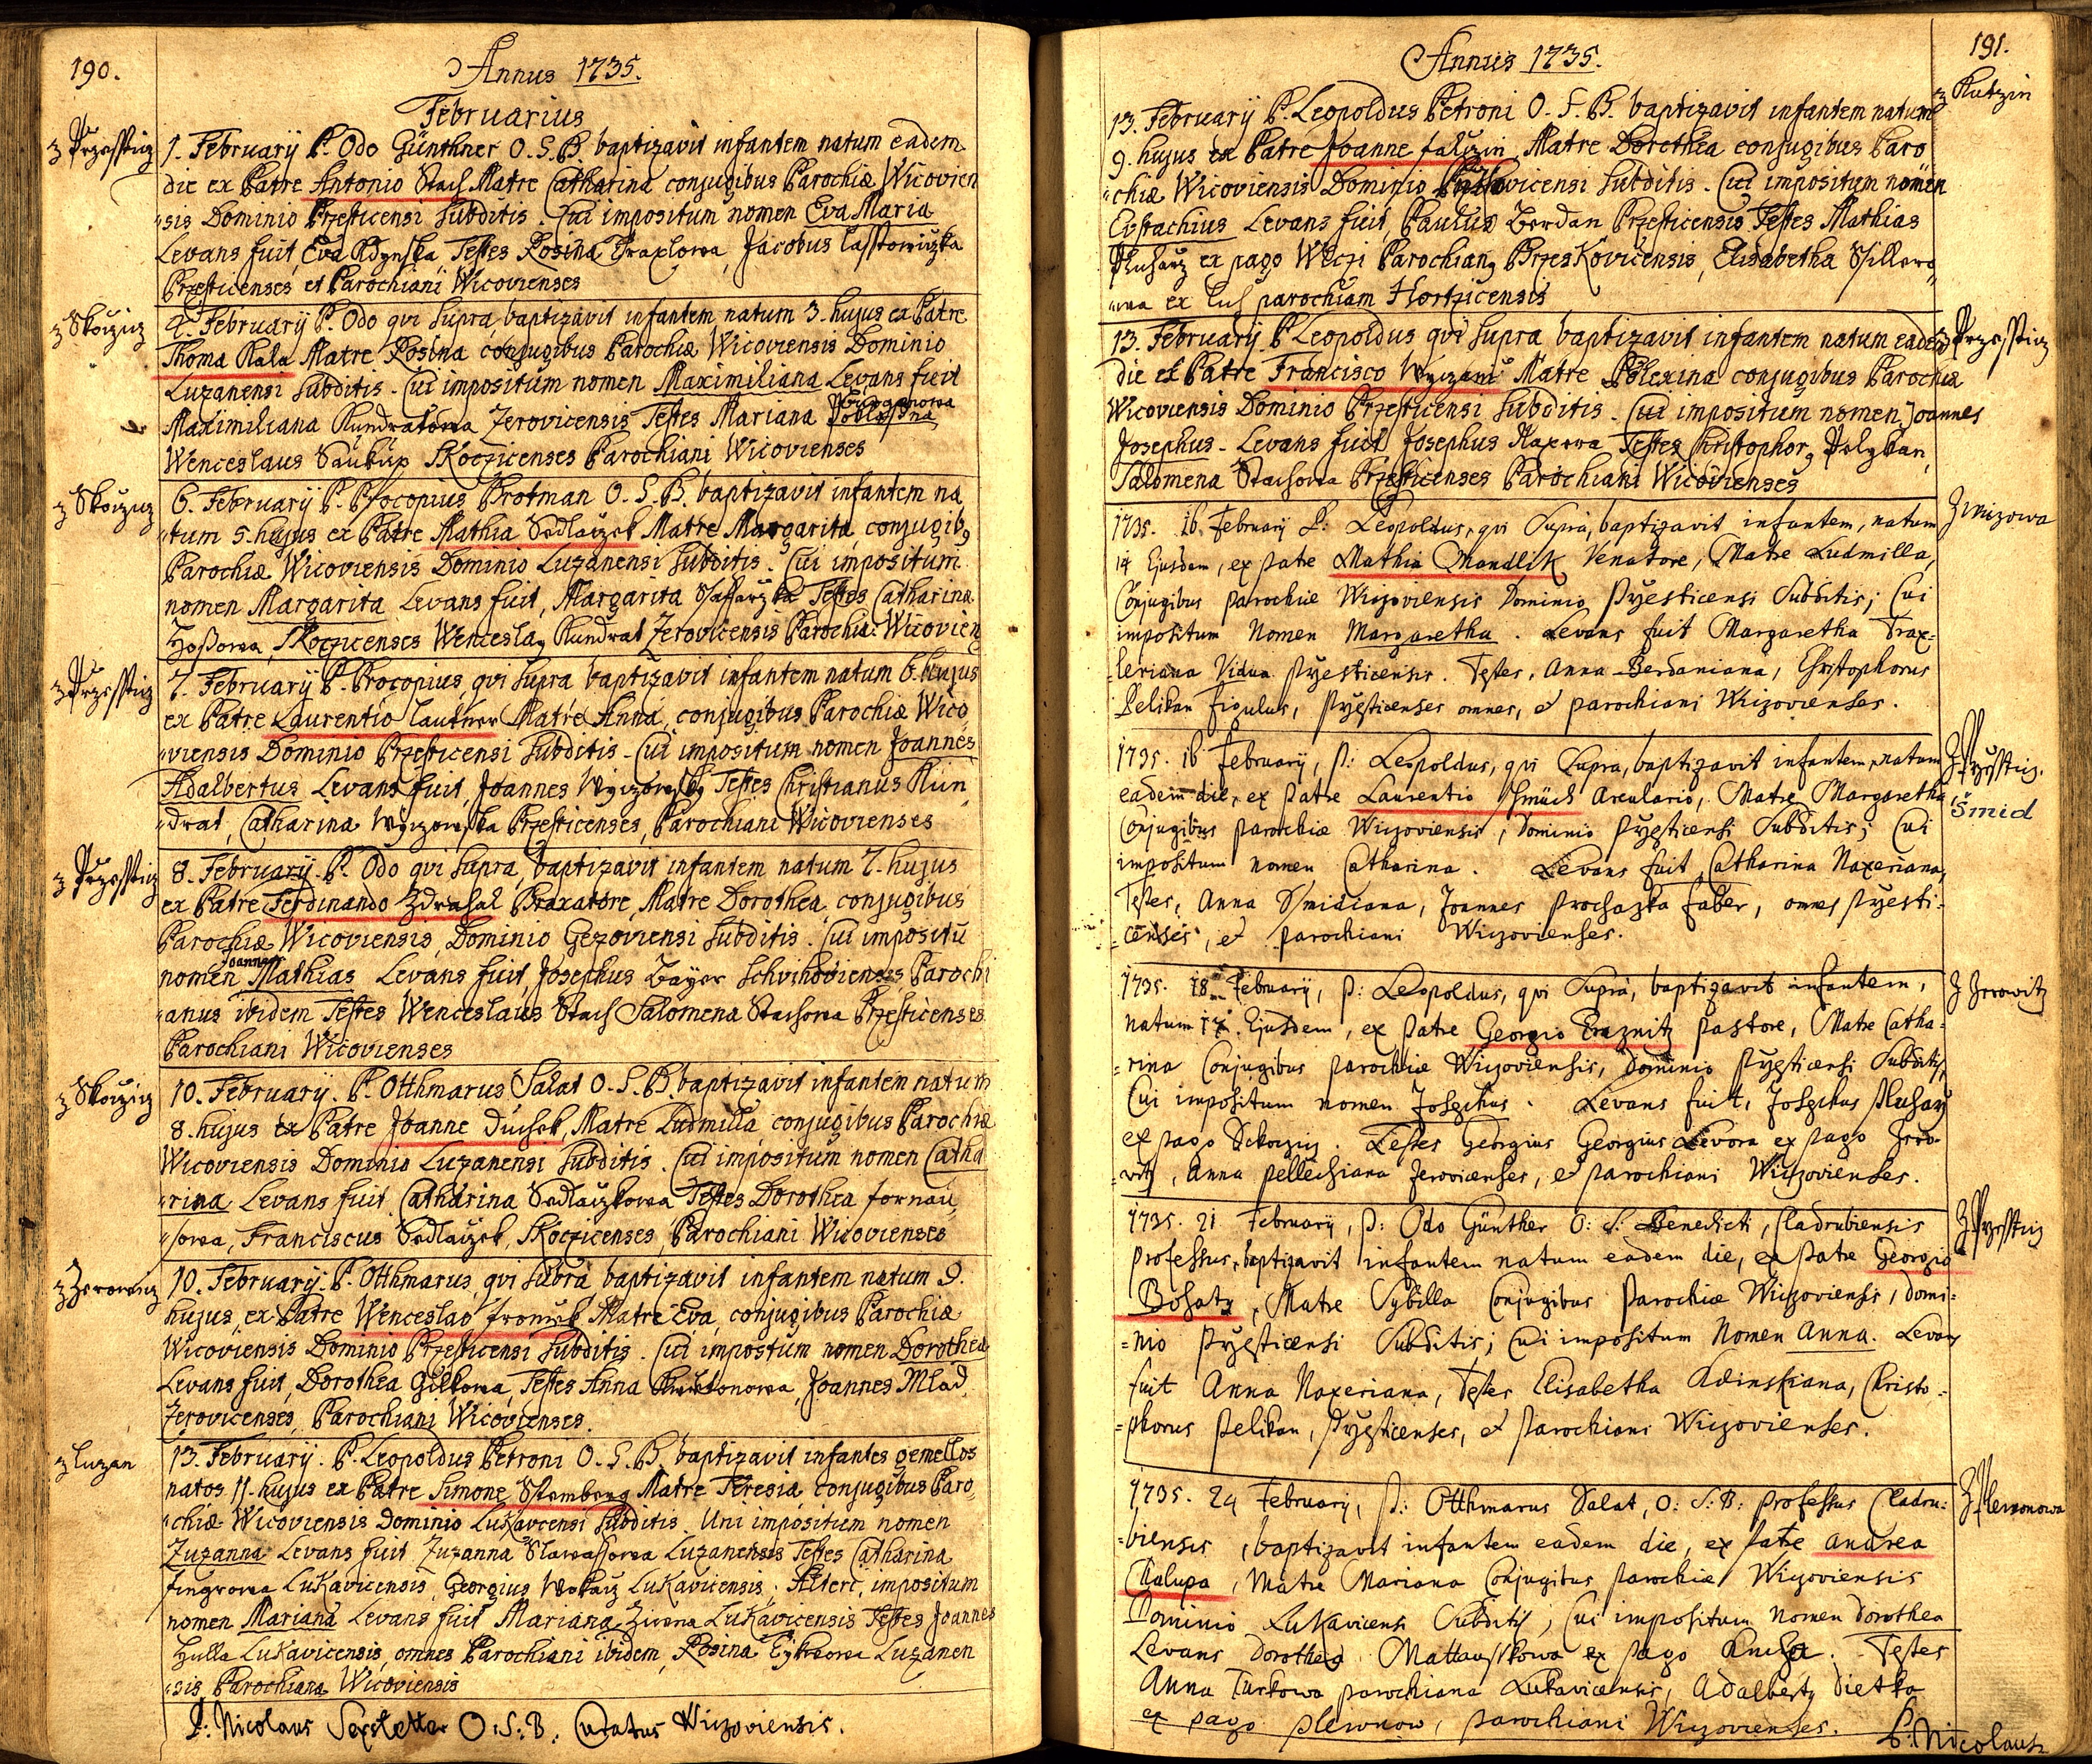 190.
Annus 1735.
Februarius
z Przessticz
1. February P. Odo Günthner O. S. B. baptizavit infantem natum eadem
die ex Patre Antonio Stach Matre Catharina conjugibus Parochiæ Wicovien
sis Dominio Przesticensi subditis. Cui impositum nomen Eva Maria
Levans fuit, Eva Adynska Testes Rosina Traxlowa, Jacobus
Przesticenses et Parochiani Wicovienses
z Skoczicz
4. February P. Odo qvi supra baptizavit infantem natum 3. hujus ex Patre
Thoma Kala Matre Rosina conjugibus Parochiæ Wicoviensis Dominio
Luzanensi subditis. Cui impositum nomen Maximiliana Levans fuit
Maximiliana Kundratowa Zerovicensis Testes Mariana
Wenceslaus Saukup Skoczicenses Parochiani Wicovienses
z Skoczicz
6. February P. Procopius Brotman O. S. B. baptizavit infantem na
tum 5. hujus ex Patre Mathia Sedlaczek Matre Margarita conjugib9
Parochiæ Wicoviensis Dominio Luzanensi subditis. Cui impositum
nomen Margarita Levans fuit, Margarita Testes Catharina
Skoczicenses Wencesla9 Kundrat Zerovicensis Parochiæ Wicovien
z Przessticz
7. February P. Procopius qvi supra baptizavit infantem natum 6. hujus
ex Patre Laurentio Lautner Matre Anna, conjugibus Parochiæ Wico
viensis Dominio Przesticensi subditis. Cui impositum nomen Joannes
Adalbertus Levans fuit, Joannes Testes Christianus Kun
drat, Catharina Przesticenses, Parochiani Wicovienses
z Przessticz
8. February. P. Odo qvi supra, baptizavit infantem natum 7. hujus
ex Patre Ferdinando Zdrahal Braxatore, Matre Dorothea conjugibus
Parochiæ Wicoviensis, Dominio Gezoviensi subditis. Cui impositū
Joannes
nomen Mathias Levans fuit, Josephus Bayer Schvihoviensis Parochi
anus ibidem Testes Wenceslaus Stach Salomena Stachowa Przesticenses
Parochiani Wicovienses
z Skoczicz
10. February. P. Otthmarus Salat O. S. B. baptizavit infantem natum
8. hujus ex Patre Joanne Duchek, Matre Ludmilla conjugibus Parochiæ
Wicoviensis Dominio Luzanensi subditis. Cui impositum nomen Catha
rina Levans fuit Catharina Sedlaczkowa Testes Dorothea
Franciscus Sedlaczek, Skoczicenses, Parochiani Wicovienses
z Zerowicz
10. February. P. Otthmarus, qvi supra baptizavit infantem natum 9.
hujus, ex Patre Wenceslao Matre Eva, conjugibus Parochiæ
Wicoviensis Dominio Przesticensi subditis. Cui impostum nomen Dorothea
Levans fuit, Dorothea Gilkowa, Testes Anna Joannes Mlad
Zerovicenses, Parochiani Wicovienses.
z Luzan
13. February. P. Leopoldus Petroni O. S. B. baptizavit infantes gemellos
natos 11. hujus ex Patre Simone Sstemberg Matre Theresia conjugibus Paro
chiæ Wicoviensis Dominio Lukavcensi subditis. Uni impositum nomen
Zuzanna Levans fuit Zuzanna Luzanensis Testes Catharina
Lukavicensis, Georgius Lukavicensis; Alteri, impositum
nomen Mariana Levans fuit Mariana Lukavicensis Testes Joannes
Hulla Lukavicensis, omnes Parochiani ibidem, Rosina Luzanen
sis Parochiana Wicoviensis
P: Nicolaus O: S: B: Curatus Wiczoviensis.
191.
Annus 1735.
z Kutzin
13. February P. Leopoldus Petroni O. S. B. baptizavit infantem natum
9. hujus ex Patre Joanne Matre Dorothea conjugibus Paro
chiæ Wicoviensis Dominio subditis. Cui impositum nomen
Evstachius Levans fuit, Paulus Berdan Przesticensis Testes Mathias
Pluharz ex pago Parochian9 Elisabetha
ex parochiam Hortzicensis
z Przessticz
13. February. P Leopoldus qvi supra baptizavit infantem natum eadem
die ex Patre Francisco Matre Polexina conjugibus Parochiæ
Wicoviensis Dominio Przesticensi subditis. Cui impositum nomen Joannes
Josephus. Levans fuit Josephus Naxera Testes Christophor9 Pelykan,
Salomena Stachowa Przesticenses Parochiani Wicovienses
1735. 16. February P: Leopoldus, qvi supra, baptizavit infantem, natum
14 Ejusdem, ex patre Mathia Mandlik Venatore, Matre Ludmilla,
Conjugibus parochiæ Wiczoviensis Dominio Przesticensi subditis; Cui
impositum Nomen Margaretha. Levans fuit Margaretha Trax=
=leriana Vidua Przesticensis. Testes, Anna Berdaniana, Christophorus
Pelikan Figulus, Przesticenses omnes, et parochiani Wiczovienses.
Z Przessticz.
šmid
1735. 16 February, P: Leopoldus, qvi supra, baptizavit infantem, natum
eadem die, ex patre Laurentio Arculario, Matre Margaretha
Conjugibus parochiæ Wiczoviensis, Dominio Przesticensi subditis; Cui
impositum nomen Catharina. Levans fuit Catharina Naxeriana,
Testes, Anna Smidiana, Joannes Prochazka faber, omnes Przesti=
=censes, et parochiani Wiczovienses.
Z Zerowitz
1735. 18 February, P: Leopoldus, qvi supra, baptizavit infantem,
natum 17. Ejusdem, ex patre Georgio pastore, Matre Catha=
=rina Conjugibus parochiæ Wiczoviensis, Dominio Przesticensi subditis,
Cui impositum nomen Josephus. Levans fuit, Josephus Pluharz
ex pago Skoczicz. Testes Georgius Georgius Levora ex pago Zero=
=witz, Anna Pellechiana Zerovicenses, et parochiani Wiczovienses.
Z Przessticz
1735. 21 February, P: Odo Günther O: S: Benedicti, Cladrubiensis
professus, baptizavit infantem natum eadem die, ex patre Georgio
Bohatz, Matre Sybilla Conjugibus Parochiæ Wiczoviensis, domi=
=nio Przesticensi subditis; Cui impositum Nomen Anna. Levans
fuit Anna Naxeriana, Testes Elisabetha Adinskiana, Christo=
=phorus Pelikan, Przesticenses, et Parochiani Wiczovienses.
1735. 24 February, P: Otthmarus Salat, O: S: B: professus Cladru=
=biensis, baptizavit infantem eadem die, ex patre Andrea
Chalupa, Matre Mariana Conjugibus parochiæ Wiczoviensis
Dominio Lukavicensi subditis, Cui impositum Nomen Dorothea
Levans Dorothea ex pago Testes
Anna Turkowa parochiana Lukavicensis, Adalbertus Dietka
ex pago plewnow, parochiani Wiczovienses. P: Nicolaus